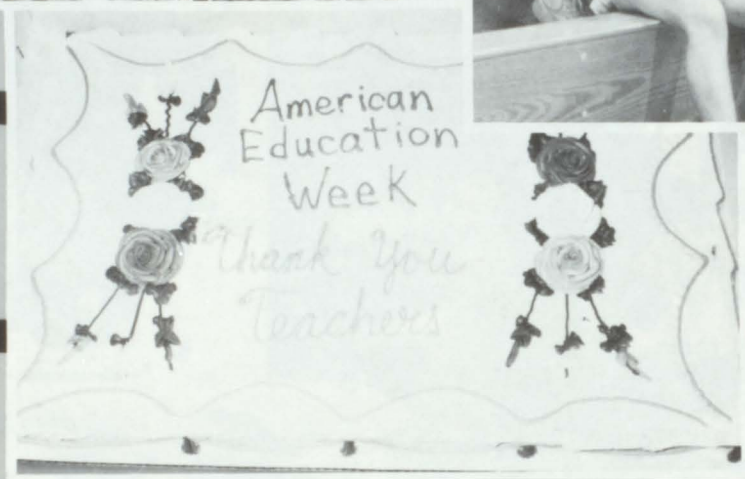 American
Education
Week
Thank You
Teachers